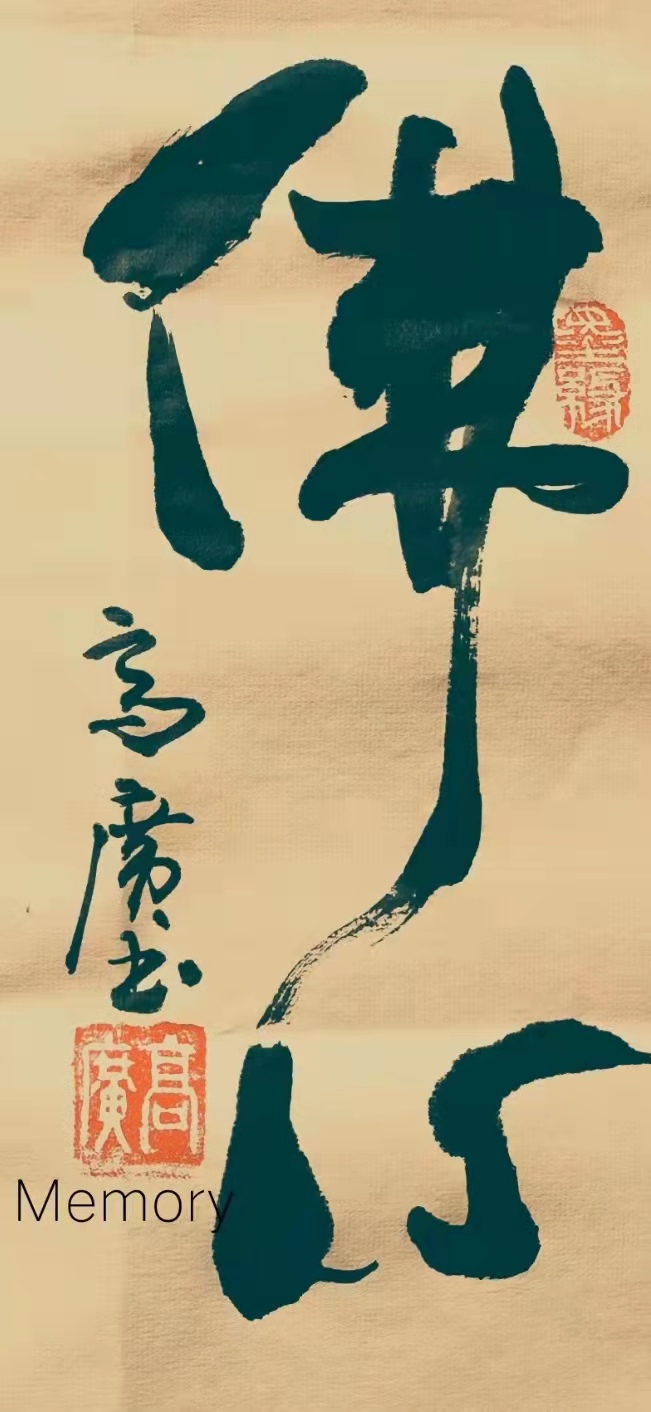 佛心
高廣书
高廣
Memory